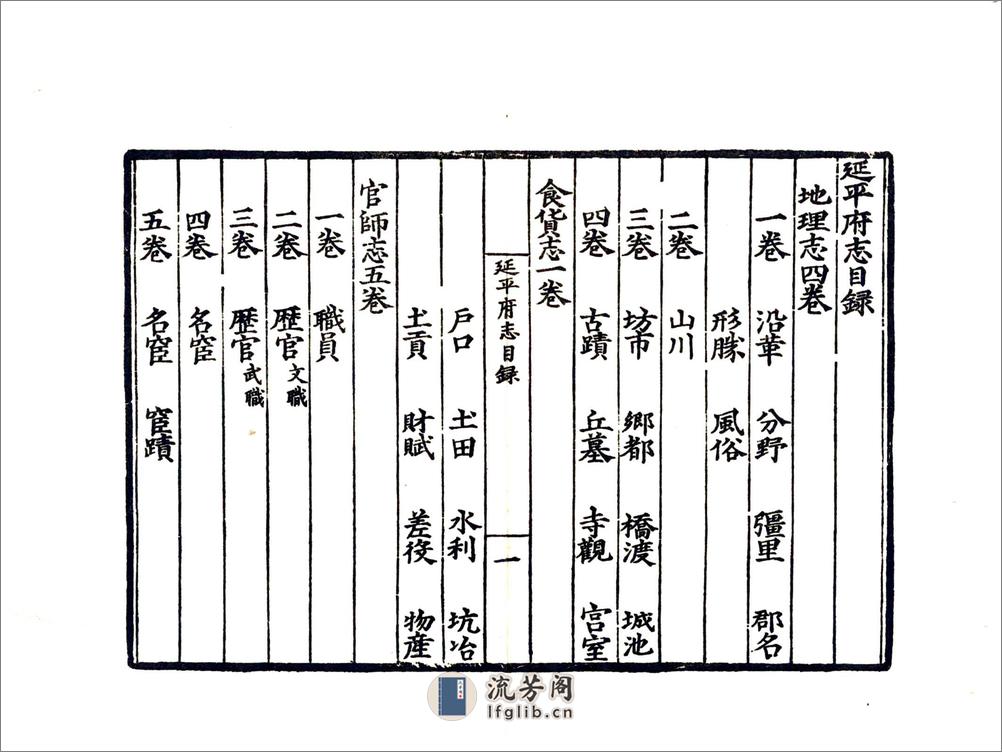 延平府志目録
地理志四卷
一卷 沿革 分野 彊里 郡名
形勝 風俗
二卷 山川
三卷 坊市 鄉都 橋渡 城池
四卷 古蹟 丘墓 寺觀 宫室
食貨志一卷
延平府志目録 一
戶口 土田 水利 坑冶
土貢 財賦 差役 物產
官師志五卷
一卷 職員
二卷 歷官文職
三卷 歷官武職
四卷 名宦
五卷 名宦 宦蹟
流芳阁
lfglib.cn